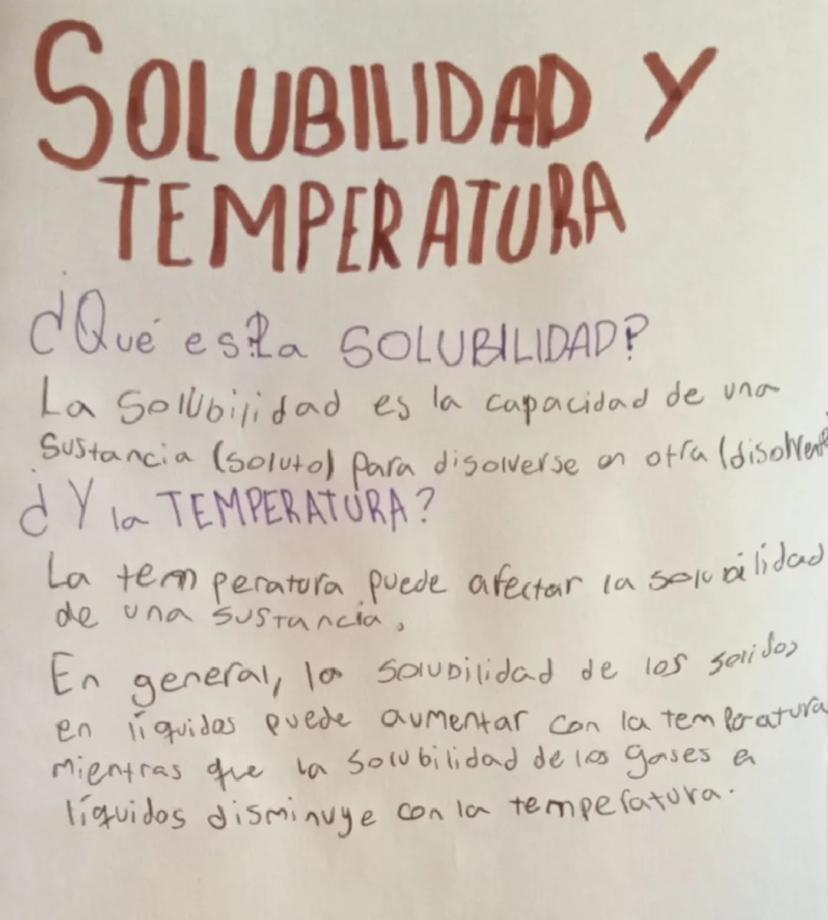 SOLUBILIDAD Y
TEMPERATURA
¿Qué es la SOLUBILIDAD?
La Solubilidad es la capacidad de una
sustancia (soluto) para disolverse en otra (disolvente
¿Y la TEMPERATURA?
La temperatura puede afectar la solubilidad
de una sustancia.
En general, la solubilidad de los solidos
en líquidos puede aumentar con la temperatura
mientras que la solubilidad de los gases e
líquidos disminuye con la temperatura.